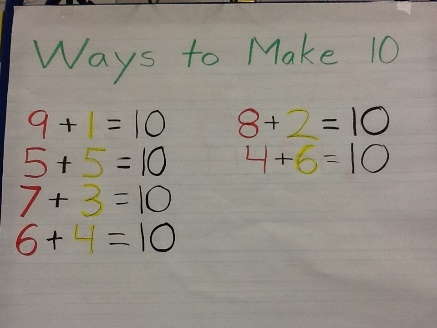 Ways to Make 10
9 + 1 = 10
5 + 5 = 10
7 + 3 = 10
6 + 4 = 10
8 + 2 = 10
4 + 6 = 10